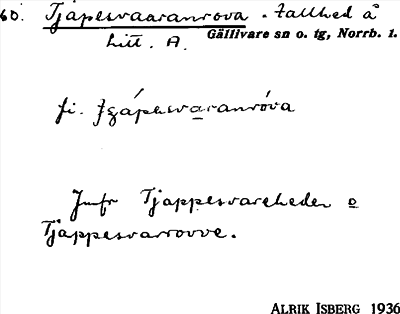 60. Tjäpesvaaranrova. tallhed å
litt. A. Gällivare sn o. tg, Norrb. l.
fi.
Jmfr Tjappesvareheden o
Tjäppesvarrovve.
ALRIK ISBERG 1936